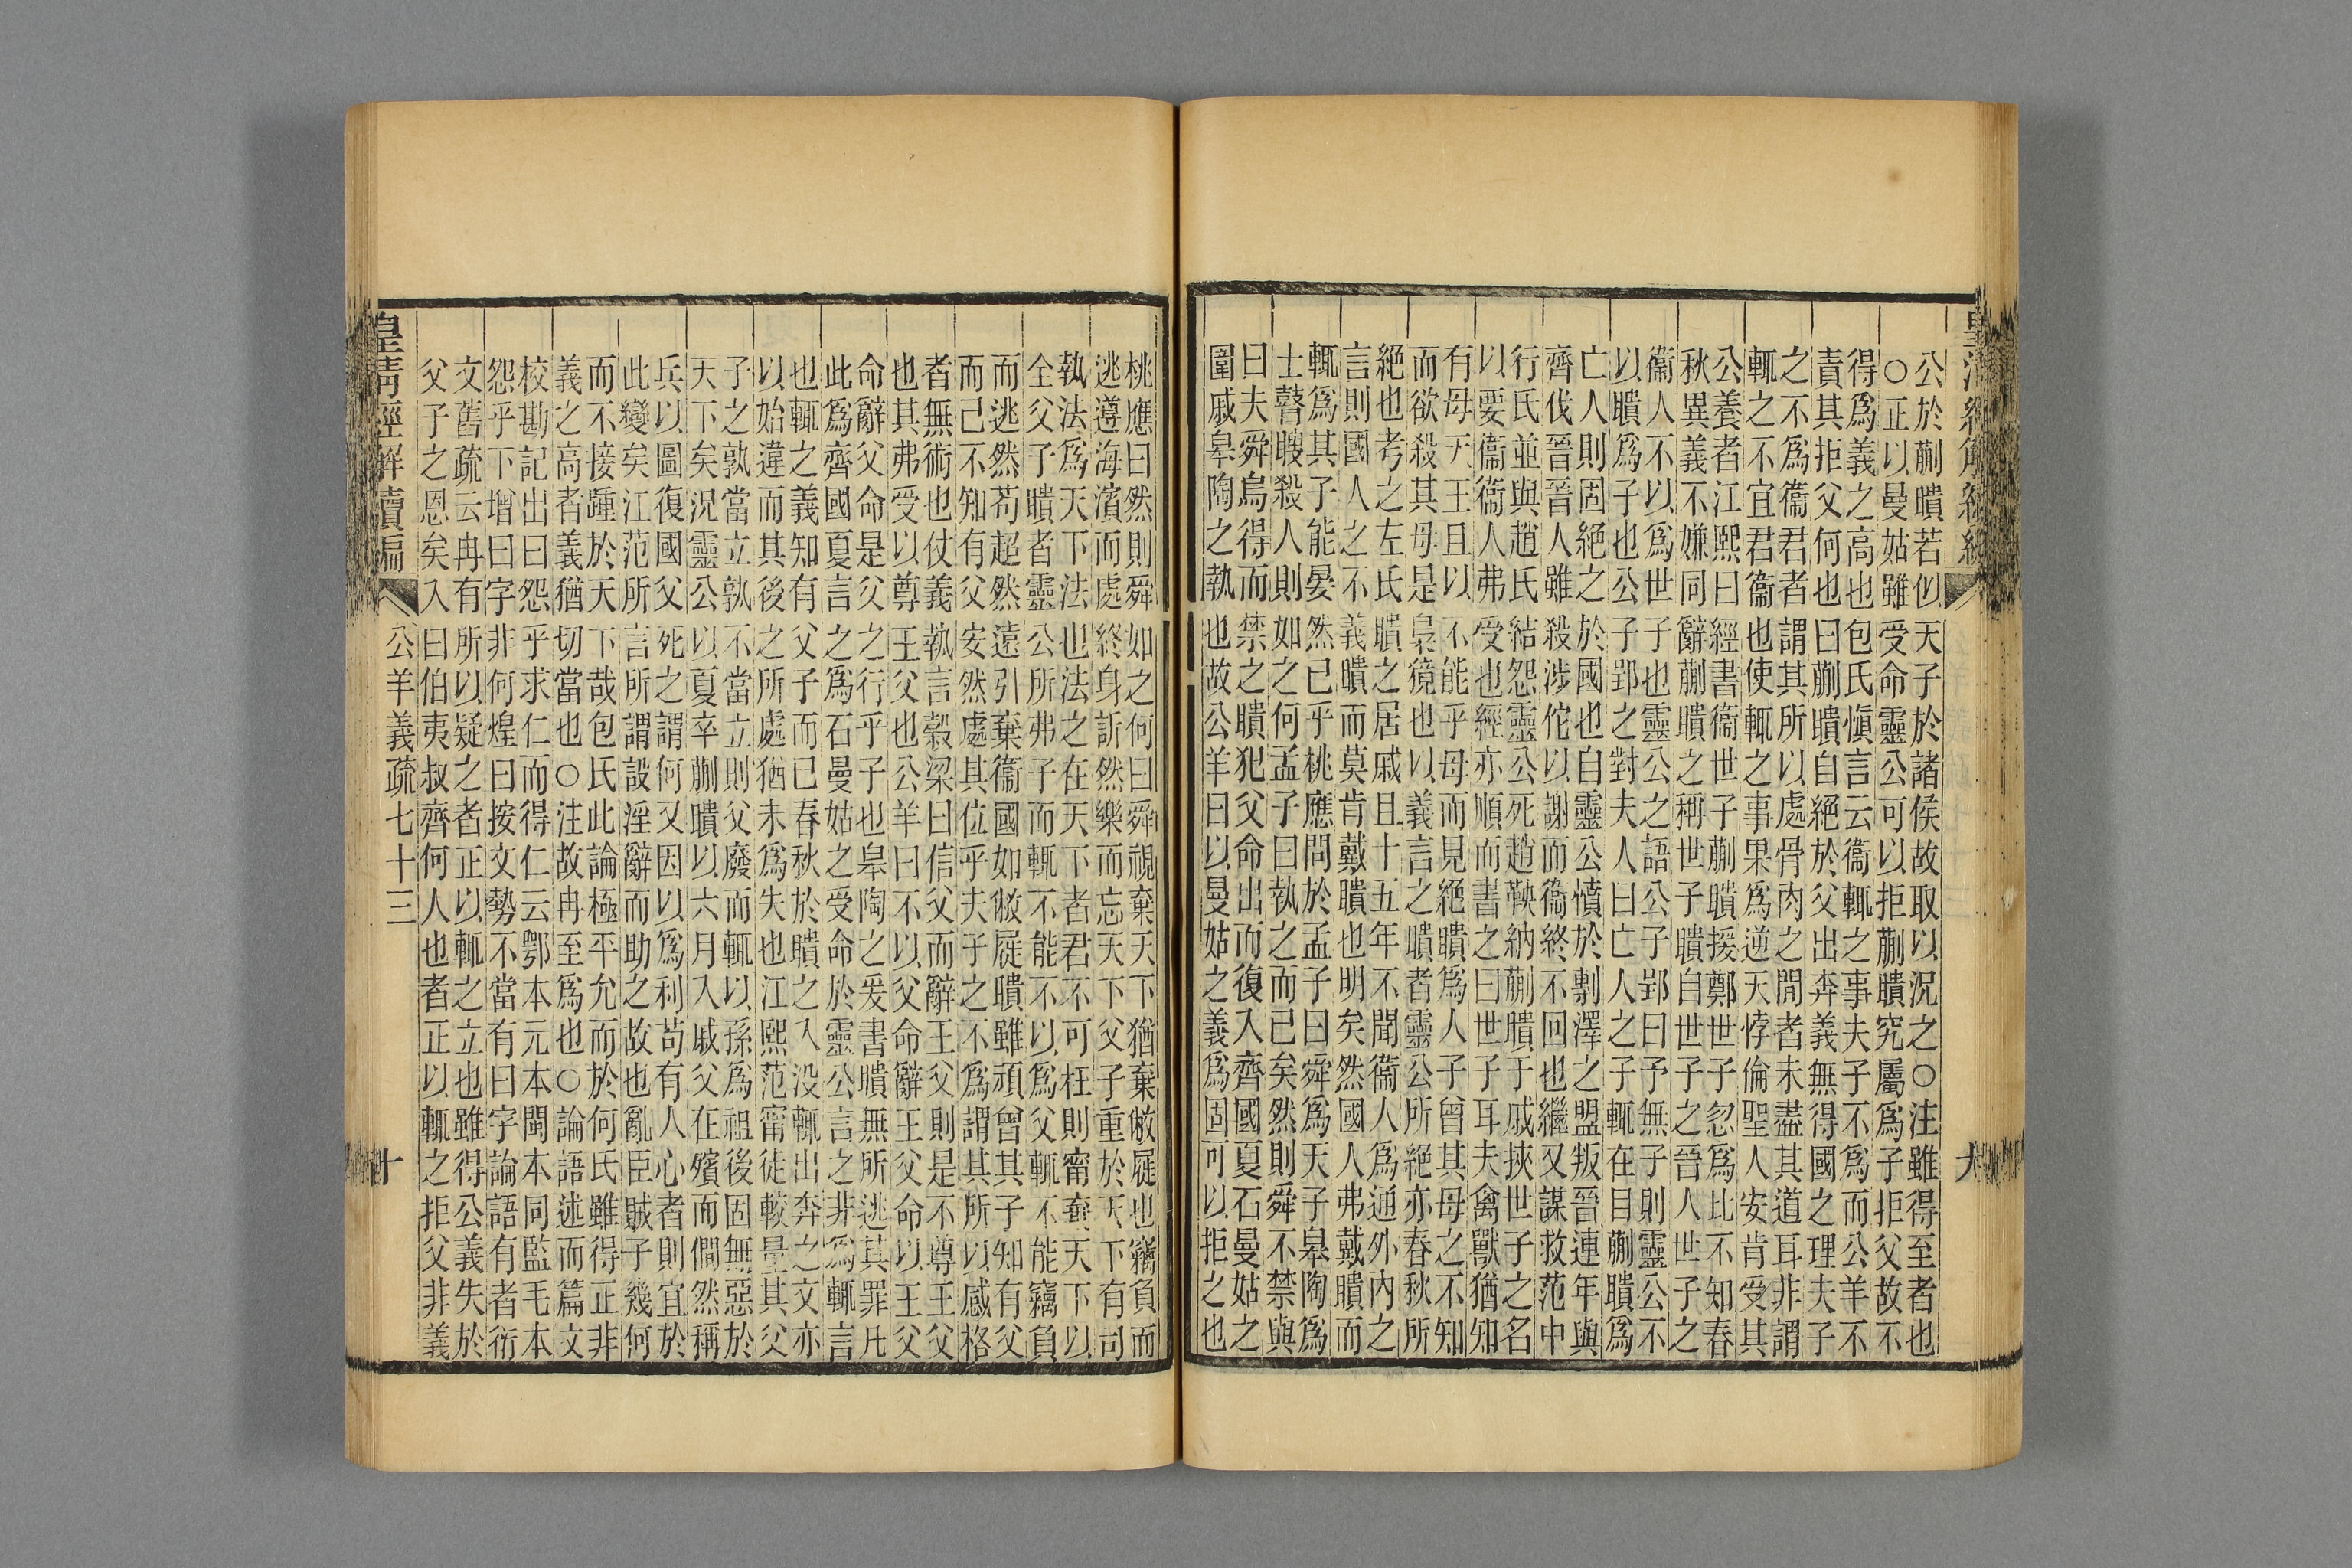 皇清經解續編
九
公於蒯聵若似天子於諸侯故取以況之○注雖得至者也
○正以曼姑雖受命靈公可以拒蒯聵究屬爲子拒父故不
得爲義之高也包氏愼言云衞輒之事夫子不爲而公羊不
責其拒父何也曰蒯聵自絕於父出奔義無得國之理夫子
之不爲衞君者謂其所以處骨肉之閒者未盡其道耳非謂
輒之不宜君衞也使輒之事果爲逆天悖倫聖人安肯受其
公養者江熙曰經書衞世子蒯聵援鄭世子忽爲比不知春
秋異義不嫌同辭蒯聵之稱世子聵自世子之晉人世子之
衞人不以爲世子也靈公之語公子郢曰予無子則靈公不
以聵爲子也公子郢之對夫人曰亡人之子輒在目蒯聵爲
亡人則固絕之於國也自靈公憤於剸澤之盟叛晉連年與
齊伐晉晉人雖殺涉佗以謝而衞終不回也繼又謀救范中
行氏並與趙氏結怨靈公死趙鞅納蒯聵于戚挾世子之名
以要衞衞人弗受也經亦順而書之曰世子耳夫禽獸猶知
有母天王且以不能乎母而見絕聵爲人子曾其母之不知
而欲殺其母是梟獍也以義言之聵者靈公所絕亦春秋所
絕也考之左氏聵之居戚且十五年不聞衞人爲通外內之
言則國人之不義聵而莫肯戴聵也明矣然國人弗戴聵而
輒爲其子能晏然已乎桃應問於孟子曰舜爲天子皋陶爲
士瞽瞍殺人則如之何孟子曰執之而已矣然則舜不禁與
曰夫舜烏得而禁之聵犯父命出而復入齊國夏石曼姑之
圍戚皋陶之執也故公羊曰以曼姑之義爲固可以拒之也
桃應曰然則舜如之何曰舜視棄天下猶棄敝屣也竊負而
逃遵海濱而處終身訢然樂而忘天下父子重於天下有司
執法爲天下法也法之在天下者君不可枉則甯棄天下以
全父子聵者靈公所弗子而輒不能不以爲父輒不能竊負
而逃然苟超然遠引棄衞國如敝屣聵雖頑曾其子知有父
而己不知有父安然處其位乎夫子之不爲謂其所以感格
者無術也仗義執言穀梁曰信父而辭王父則是不尊王父
也其弗受以尊王父也公羊曰不以父命辭王父命以王父
命辭父命是父之行乎子也皋陶之爰書聵無所逃其罪凡
此爲齊國夏言之爲石曼姑之受命於靈公言之非爲輒言
也輒之義知有父子而已春秋於聵之入没輒出奔之文亦
以始違而其後之所處猶未爲失也江熙范甯徒較量其父
子之孰當立孰不當立則父廢而輒以孫爲祖後固無惡於
天下矣況靈公以夏卒蒯聵以六月入戚父在殯而僴然稱
兵以圖復國父死之謂何又因以爲利苟有人心者則宜於
此變矣江范所言所謂設淫辭而助之故也亂臣賊子幾何
而不接踵於天下哉包氏此論極平允而於何氏雖得正非
義之高者義猶切當也○注故冉至爲也○論語述而篇文
校勘記出曰怨乎求仁而得仁云鄂本元本閩本同監毛本
怨乎下增曰字非何煌曰按文勢不當有曰字論語有者衍
文舊疏云冉有所以疑之者正以輒之立也雖得公義失於
父子之恩矣入曰伯夷叔齊何人也者正以輒之拒父非義
皇清經解續編
公羊義疏七十三
十